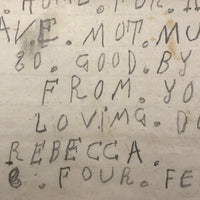 . HOME. FOR. I
AVE. MOT. MU
SO. GOOD. BY
FROM. YO
LOVING. D
REBECCA.
8. FOUR. FE